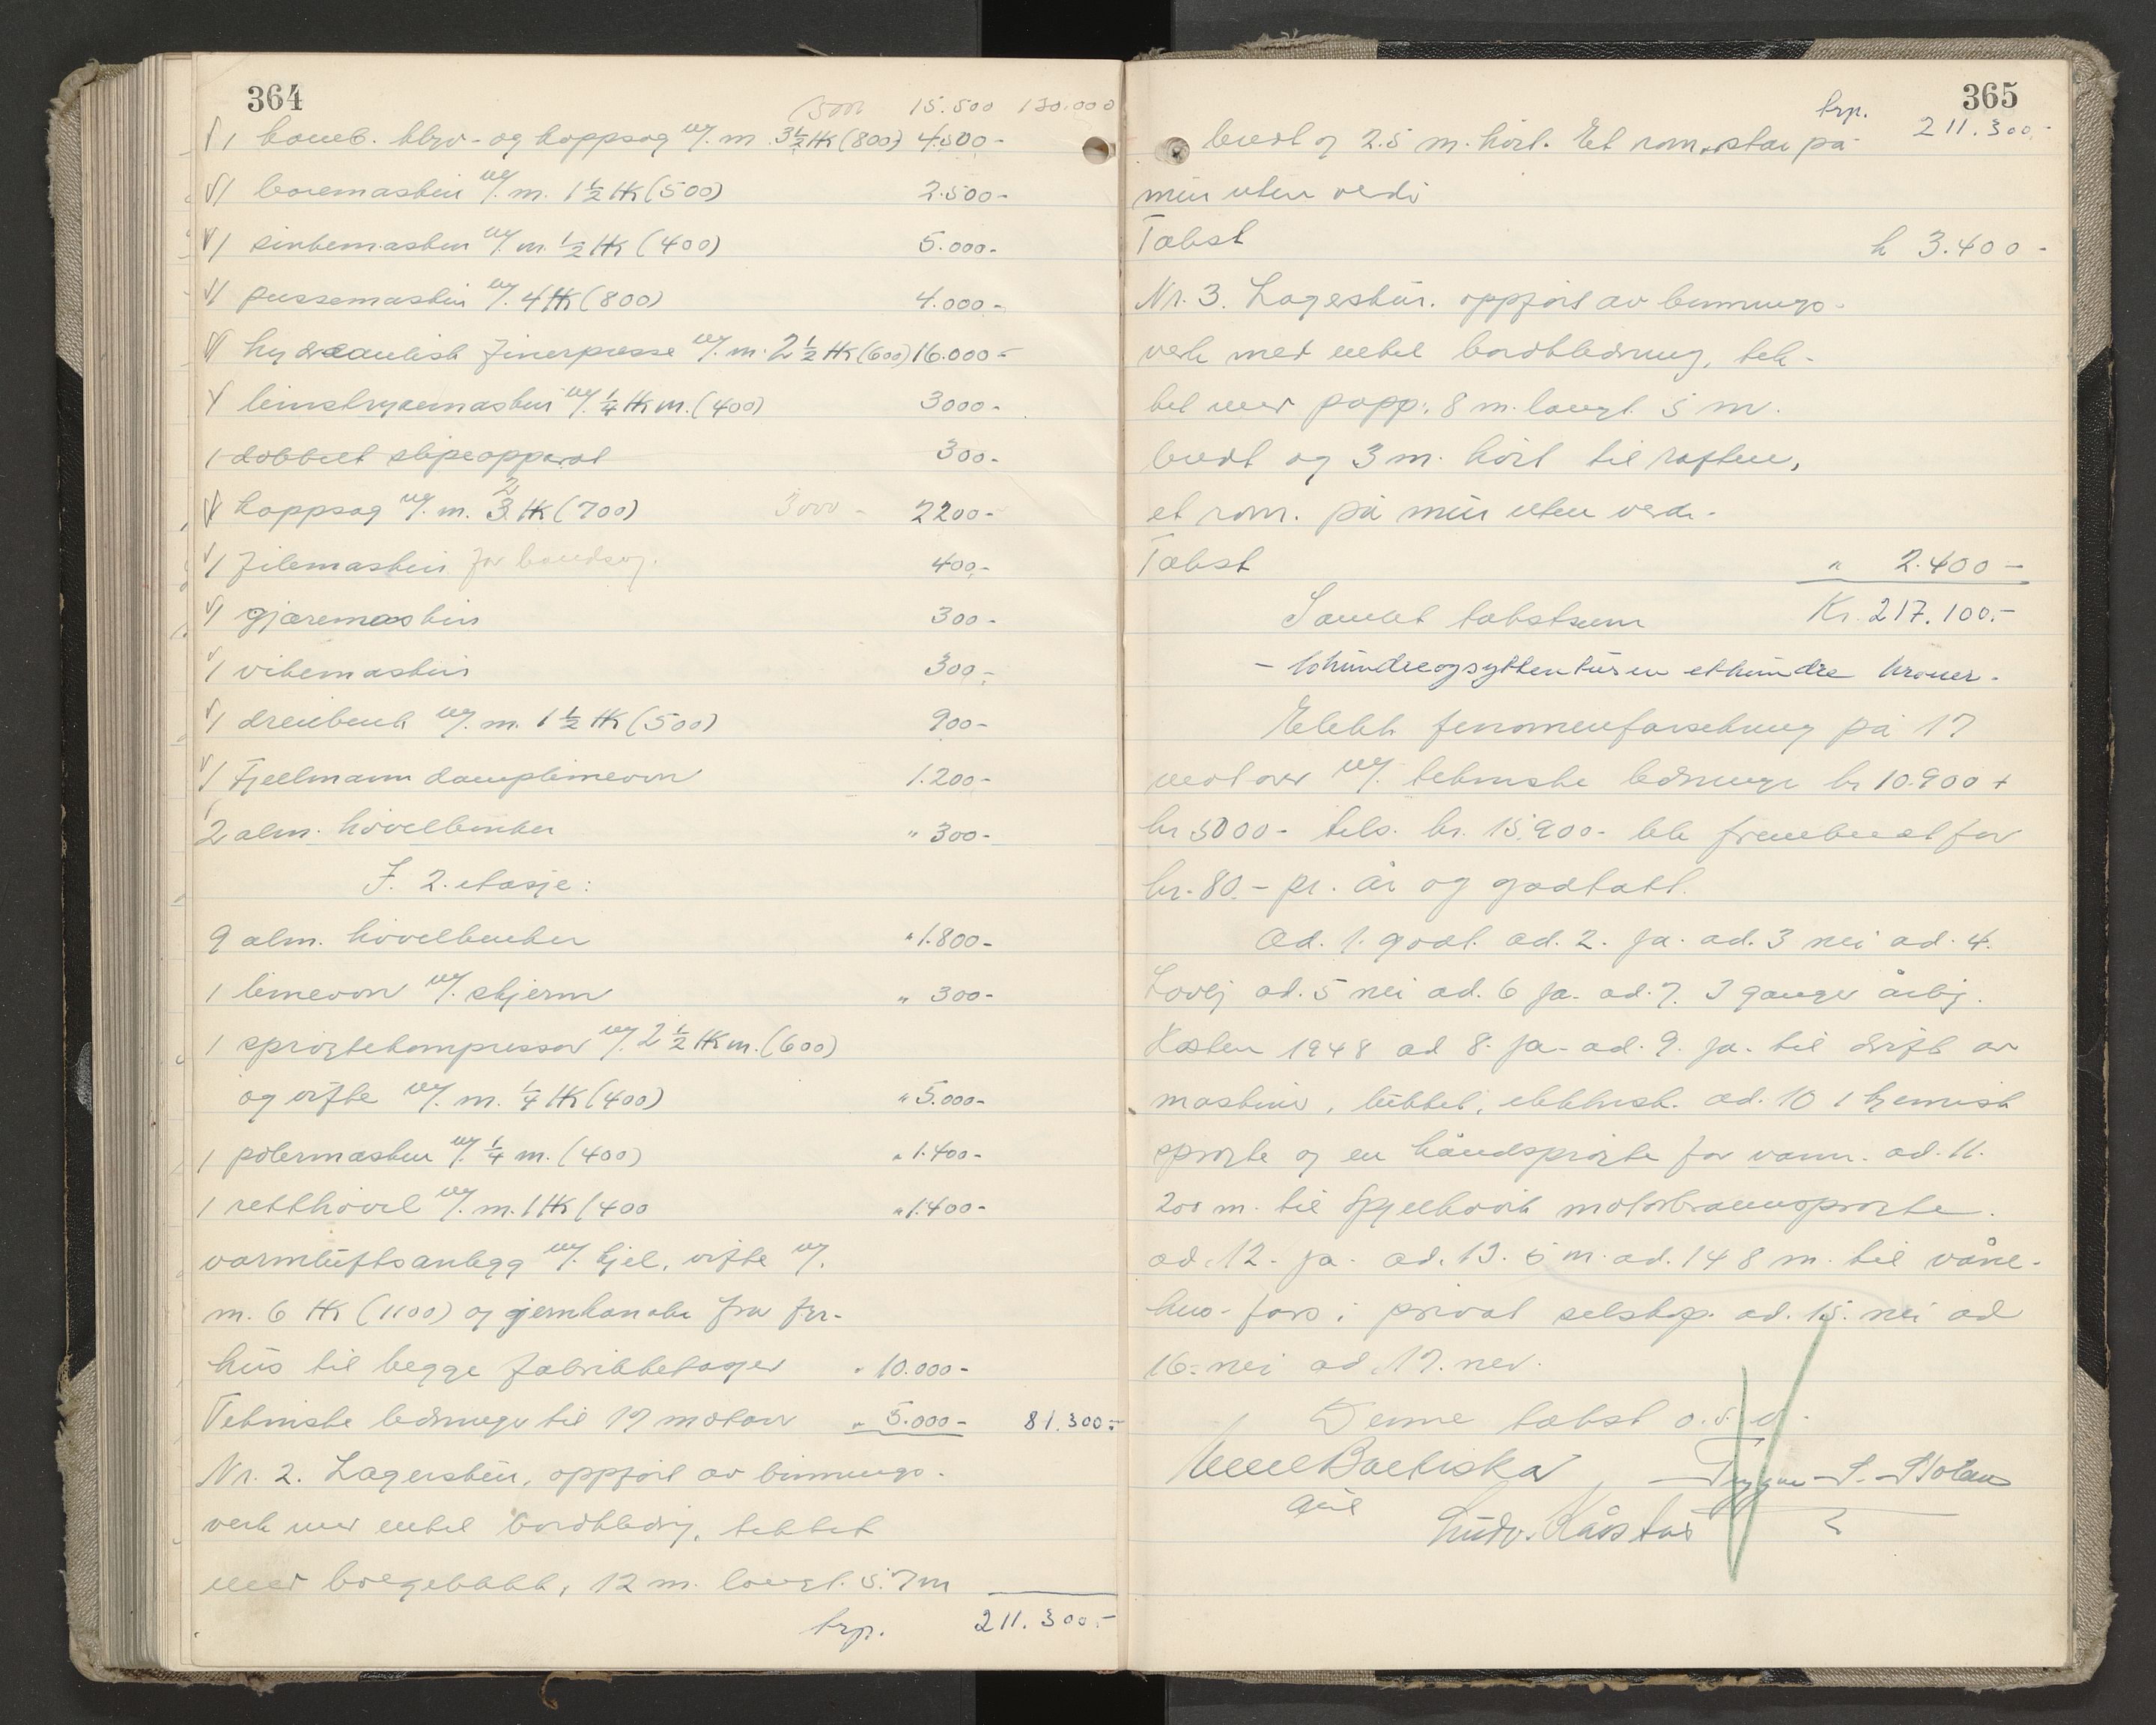 364
15.500 130.000
1 komb. kløv- og kappsag m/. m. 3½ HK (800) 4.500-
1 boremaskin m/. m. 1½ HK (500) 2.500-
1 sinkemaskin m/. m. ½ HK (400) 5.000-
1 pussemaskin m/. 4 HK (800) 4.000-
1 hydraulisk finerpresse m/. m. 2½ HK (600) 16.000-
1 limstrykemaskin m/. ¼ HK m. (400) 3000-
1 dobbelt slipeapparat 300-
1 kappsag m/. m. 3 HK (700) 3000- 2200-
1 filemaskin for bandsag. 400,-
1 gjæremaskin 300-
1 vikemaskin 300,-
1 dreibenk m/. m. 1½ HK (500) 900-
1 Fjellmann damplimovn 1.200-
2 alm. høvelbenker " 300-
I. 2. etasje:
9 alm. høvelbenker " 1.800-
1 limovn m/. skjerm " 300-
1 sprøytekompressor m/. 2½ HK m. (600)
og vifte m/. m. ¼ HK (400) " 5.000-
1 polermaskin m/. ¼ m. (400) " 1.400-
1 retthøvel m/. m. 1 HK (400 " 1.400-
varmluftsanlegg m/. kjel, vifte m/.
m. 6 HK (1100) og jernkanaler fra fyr-
hus til begge fabrikketasjer " 10.000-
Tekniske ledninger til 17 motorer " 5.000- 81.300:-
Nr. 2. Lagerskur, oppført av binnings-
verk med enkel bordkledn., tekket
med bølgeblikk, 12 m. langt. 5.7 m
trp. 211.300.-
365
trp. 211.300.-
bredt og 2.5 m. høit. Et rom, står på
mur uten verdi
Takst k 3.400-
Nr. 3. Lagerskur. oppført av binnings-
verk med enkel bordkledning, tek-
ket med papp: 8 m. langt. 5 m.
bredt og 3 m. høit til raften,
et rom. på mur uten verdi.
Takst " 2.400-
Samlet takstsum Kr. 217.100.-
- tohundreogsyttentusen ethundre kroner.
Elektr. fenomenforsikring på 17
motorer m/. tekniske ledninger kr 10.900 +
kr 5000- tils. kr. 15.900- ble frembudt for
kr. 80.- pr. år og godtatt.
Ad. 1. godt. ad. 2. ja. ad. 3 nei ad. 4.
ad. 5 nei ad. 6 ja. ad. 7. 3 ganger årlig.
Høsten 1948 ad 8. ja. ad. 9. ja. til drift av
maskiner, lukket, elektrisk. ad. 10 1 kjemisk
sprøyte og en håndsprøyte for vann. ad. 11.
200 m. til Spjelkavik motorbrannsprøyte.
ad. 12. ja. ad. 13. 5 m. ad. 14 8 m. til våne-
hus- fors. i privat selskap. ad. 15. nei ad
16. nei ad 17. nei.
Denne takst o.s.v.
Ludv. Kårstad